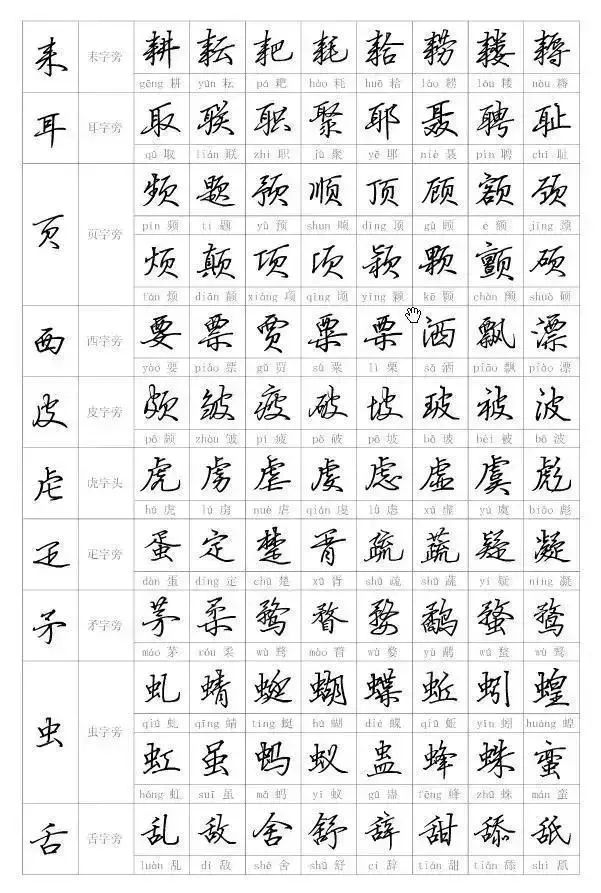 耒 耒字旁 耕 耘 耙 耗 耠 耢 耧 耨
gēng 耕 yún 耘 pá 耙 hào 耗 huō 耠 lào 耢 lóu 耧 nòu 耨
耳 耳字旁 取 联 职 聚 耶 聂 聘 耻
qǔ 取 lián 联 zhí 职 jù 聚 yē 耶 niè 聂 pìn 聘 chǐ 耻
页 页字旁 频 题 预 顺 顶 顾 额 颈
pín 频 tí 题 yù 预 shùn 顺 dǐng 顶 gù 顾 é 额 jǐng 颈
烦 颠 项 顷 颖 颗 颤 硕
fán 烦 diān 颠 xiàng 项 qǐng 顷 yǐng 颖 kē 颗 chàn 颤 shuò 硕
西 西字旁 要 票 贾 粟 栗 洒 飘 漂
yào 要 piào 票 gǔ 贾 sù 粟 lì 栗 sǎ 洒 piāo 飘 piāo 漂
皮 皮字旁 颇 皱 疲 破 坡 玻 被 波
pō 颇 zhòu 皱 pí 疲 pò 破 pō 坡 bō 玻 bèi 被 bō 波
虍 虎字头 虎 虏 虐 虔 虑 虚 虞 彪
hǔ 虎 lǔ 虏 nuè 虐 qián 虔 lǜ 虑 xū 虚 yú 虞 biāo 彪
疋 疋字旁 蛋 定 楚 胥 疏 蔬 疑 凝
dàn 蛋 dìng 定 chǔ 楚 xū 胥 shū 疏 shū 蔬 yí 疑 níng 凝
矛 矛字旁 茅 柔 骛 瞀 婺 鹉 蝥
máo 茅 róu 柔 wù 骛 mào 瞀 wù 婺 鹉 蝥
虫 虫字旁 虬 蜻 蜓 蝴 蝶 蚯 蚓 蝗
qiú 虬 qīng 蜻 tíng 蜓 hú 蝴 dié 蝶 qiū 蚯 yǐn 蚓 huáng 蝗
虹 虽 蚂 蚁 蛊 蜂 蛛 蛮
hóng 虹 suī 虽 mǎ 蚂 yǐ 蚁 gǔ 蛊 fēng 蜂 zhū 蛛 mán 蛮
舌 舌字旁 乱 敌 舍 舒 辞 甜 舔 舐
luàn 乱 dí 敌 shě 舍 shū 舒 cí 辞 tián 甜 tiǎn 舔 shì 舐